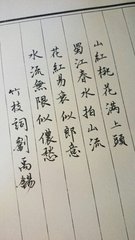 山紅桃花滿上頭
蜀江春水拍山流
花紅易衰似郎意
水流無限似儂愁
竹枝詞劉禹錫